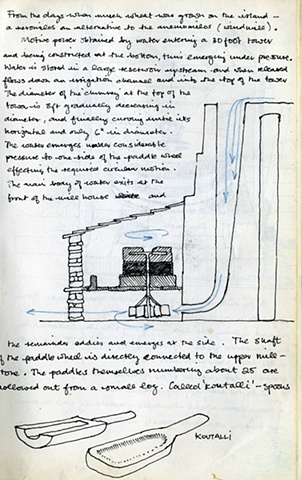 From the days when much wheat was grown on the island -
a neromilos an alternative to the anemomilos (windmill).
Motive power obtained by water entering a 30 foot tower
and being constricted at the bottom, thus emerging under pressure.
Water is stored in a large reservoir upstream and when released
flows down an irrigation channel and into the top of the tower
The diameter of the chimney at the top of the
tower is 8ft gradually decreasing in
diameter, and finally curving until its
horizontal and only 6" in diameter.
The water emerges under considerable
pressure to one side of the paddle wheel
effecting the required circular motion.
The main body of water exits at the
front of the mill house and
the remainder eddies and emerges at the side. The shaft
of the paddle wheel is directly connected to the upper mill-
stone. The paddles themselves numbering about 25 are
hollowed out from a small log. Called 'koutalli' - spoons
KOUTALLI